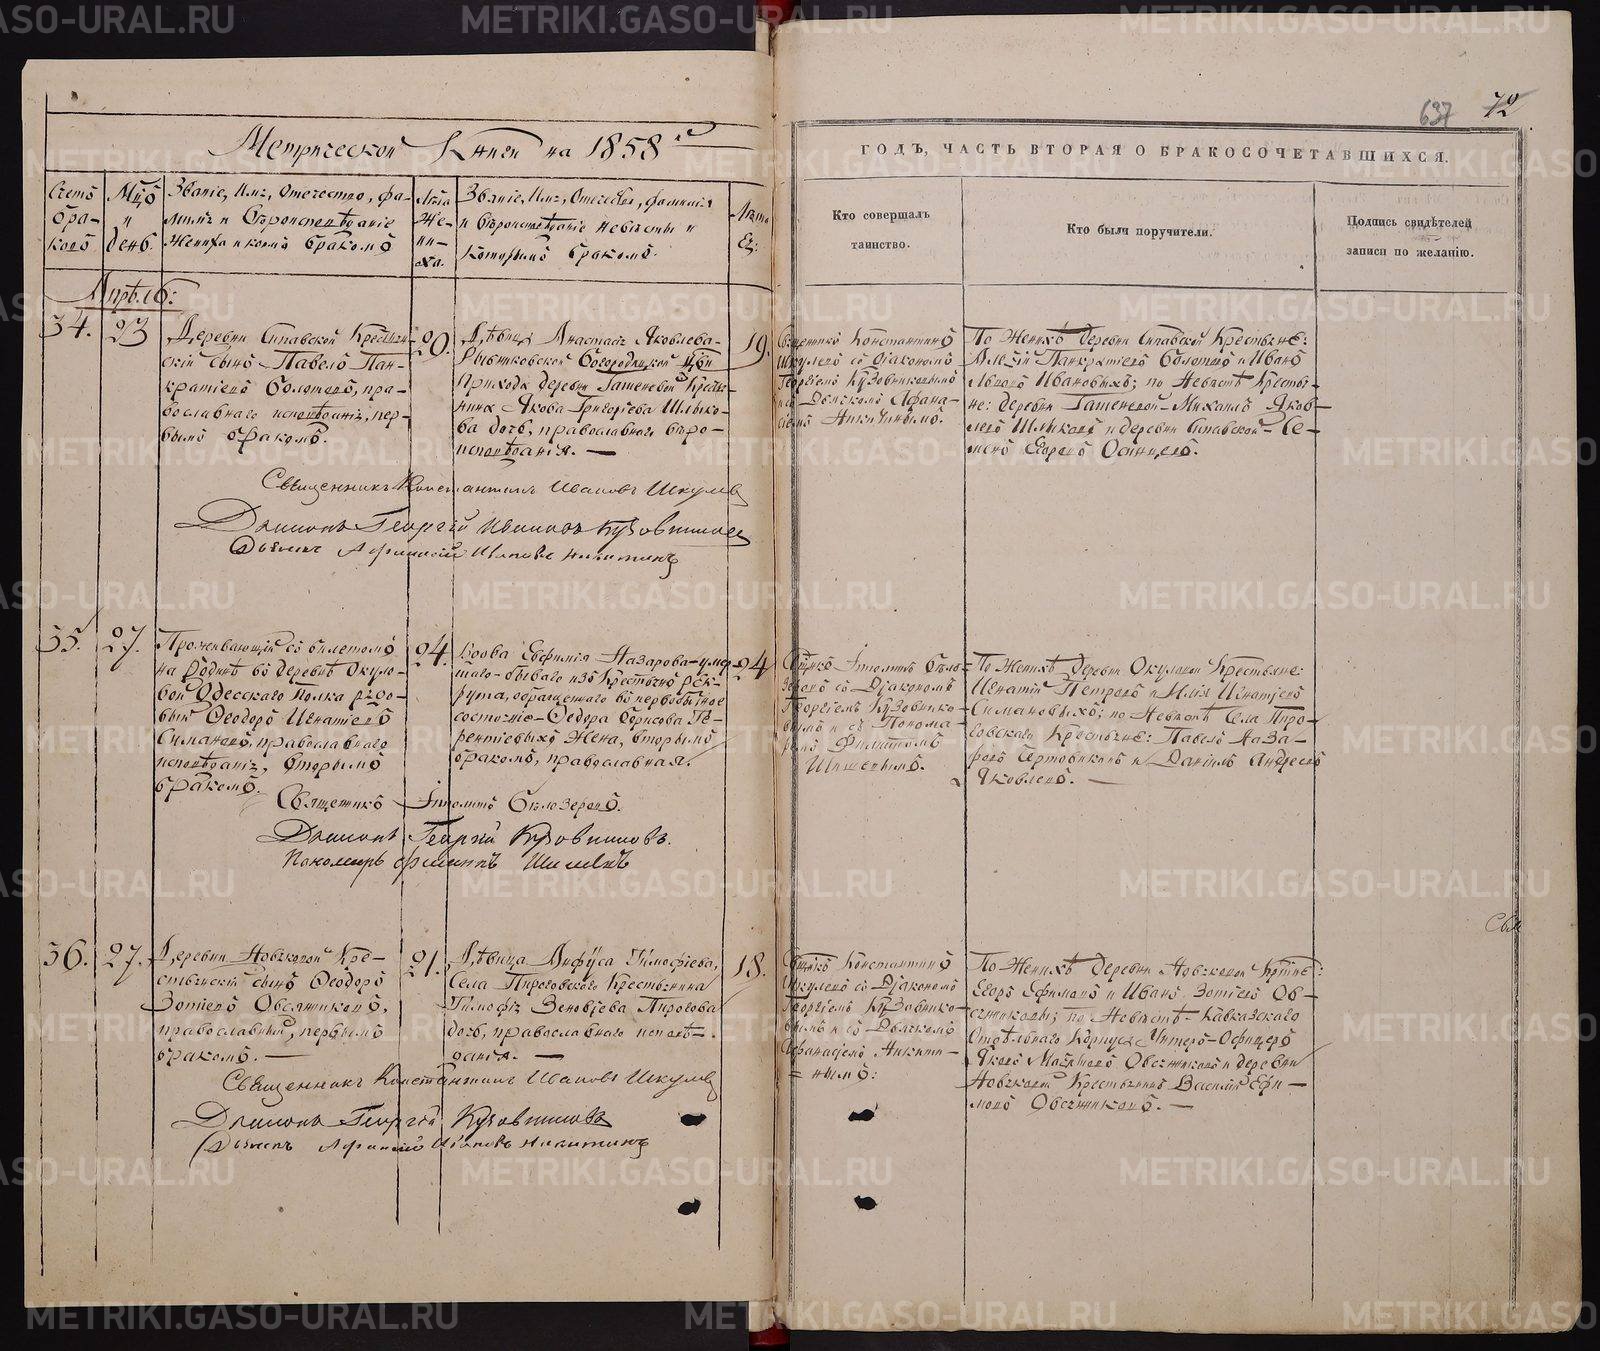 637 72
Метрической Книги на 1858й
ГОДЪ, ЧАСТЬ ВТОРАЯ О БРАКОСОЧЕТАВШИХСЯ.
Счетъ бра-ковъ
Мцъ и день.
Званіе, Имя, Отечество, фа-
милія и Вѣроисповѣданіе
Жениха и коимъ бракомъ
Лѣта Же-ни-ха.
Званіе, Имя, Отечество, фамилія
и Вѣроисповѣданіе невѣсты и
которымъ бракомъ.
Лѣта Ея:
Кто совершалъ
таинство.
Кто были поручители.
Подпись свидѣтелей
записи по желанію.
Апрѣль:
34. 23
Деревни Сипавской Крестьян-
скій сынъ Павелъ Пан-
кратіевъ Болотовъ, пра-
вославнаго исповѣданія, пер-
вымъ бракомъ.
20.
Дѣвица Анастасія Яковлева-
Рыбниковской Богородицкой Цркви
Прихода деревни Гашеневой Кресть-
янина Якова Григоріева Шлыко-
ва дочь, православнаго вѣро-
исповѣданія. —
19.
Священникъ Константинъ
Шкулевъ съ Діакономъ
Георгіемъ Кузовниковымъ
и съ Дьячкомъ Афана-
сіемъ Никитинымъ.
По Женихѣ деревни Сипавской Крестьяне:
Алексій Панкратіевъ Болотовъ и Иванъ
Львовъ Ивановыхъ; по Невѣстѣ Крестья-
не: деревни Гашеневой Михаилъ Яков-
левъ Шлыковъ и деревни Сипавской Се-
менъ Егоровъ Осинцевъ.
Священникъ Константинъ Ивановъ Шкулевъ
Діаконъ Георгій Ивановъ Кузовниковъ
Дьячекъ Афанасій Ивановъ Никитинъ
35. 27.
Проживающій съ билетомъ
на родинѣ въ деревнѣ Окуло-
вой Одесскаго Полка рядо-
вый Феодоръ Игнатіевъ
Симановъ, православнаго
исповѣданія, вторымъ
бракомъ.
24.
Вдова Евфимія Назарова-умер-
шаго-бывшаго изъ Крестьянъ рек-
рута, обращеннаго въ первобытное
состояніе-Федора Борисова Те-
рентіевыхъ Жена, вторымъ
бракомъ, православная.
24
Сщнкъ Іпполитъ Бѣло-
зеровъ съ Діакономъ
Георгіемъ Кузовнико-
вымъ и съ Понома-
ремъ Филиппомъ
Шишевымъ.
По Женихѣ деревни Окуловой Крестьяне:
Игнатій Петровъ и Илія Игнатіевъ
Симановыхъ; по Невѣстѣ Села Пиро-
говскаго Крестьяне: Павелъ Наза-
ровъ Чертовикинъ и Даніилъ Андреевъ
Яковлевъ. —
Священникъ Іпполитъ Бѣлозеровъ.
Діаконъ Георгій Кузовниковъ.
Пономарь Филиппъ Шишевъ
Свм
36. 27.
Деревни Новиковой Кре-
стьянскій сынъ Феодоръ
Зотіевъ Овсянниковъ,
православный, первымъ
бракомъ. —
21.
Дѣвица Анфуса Тимофіева,
Села Пироговскаго Крестьянина
Тимофія Зеновіева Пирогова
дочь, православнаго исповѣ-
данія. —
18.
Сщнкъ Константинъ
Шкулевъ съ Діакономъ
Георгіемъ Кузовнико-
вымъ и съ Дьячкомъ
Афанасіемъ Никити-
нымъ:
По Женихѣ деревни Новиковой Кртяне:
Егоръ Ефимовъ и Иванъ Зотіевъ Ов-
сянниковы; по Невѣстѣ-Кавказскаго
Отдѣльнаго Корпуса Унтеръ-Офицеръ
Яковъ Матвіевъ Овсянниковъ и деревни
Новиковой Крестьянинъ Василій Ефи-
мовъ Овсянниковъ. —
Священникъ Константинъ Ивановъ Шкулевъ
Діаконъ Георгій Кузовниковъ
Дьячекъ Афанасій Ивановъ Никитинъ
METRIKI.GASO-URAL.RU